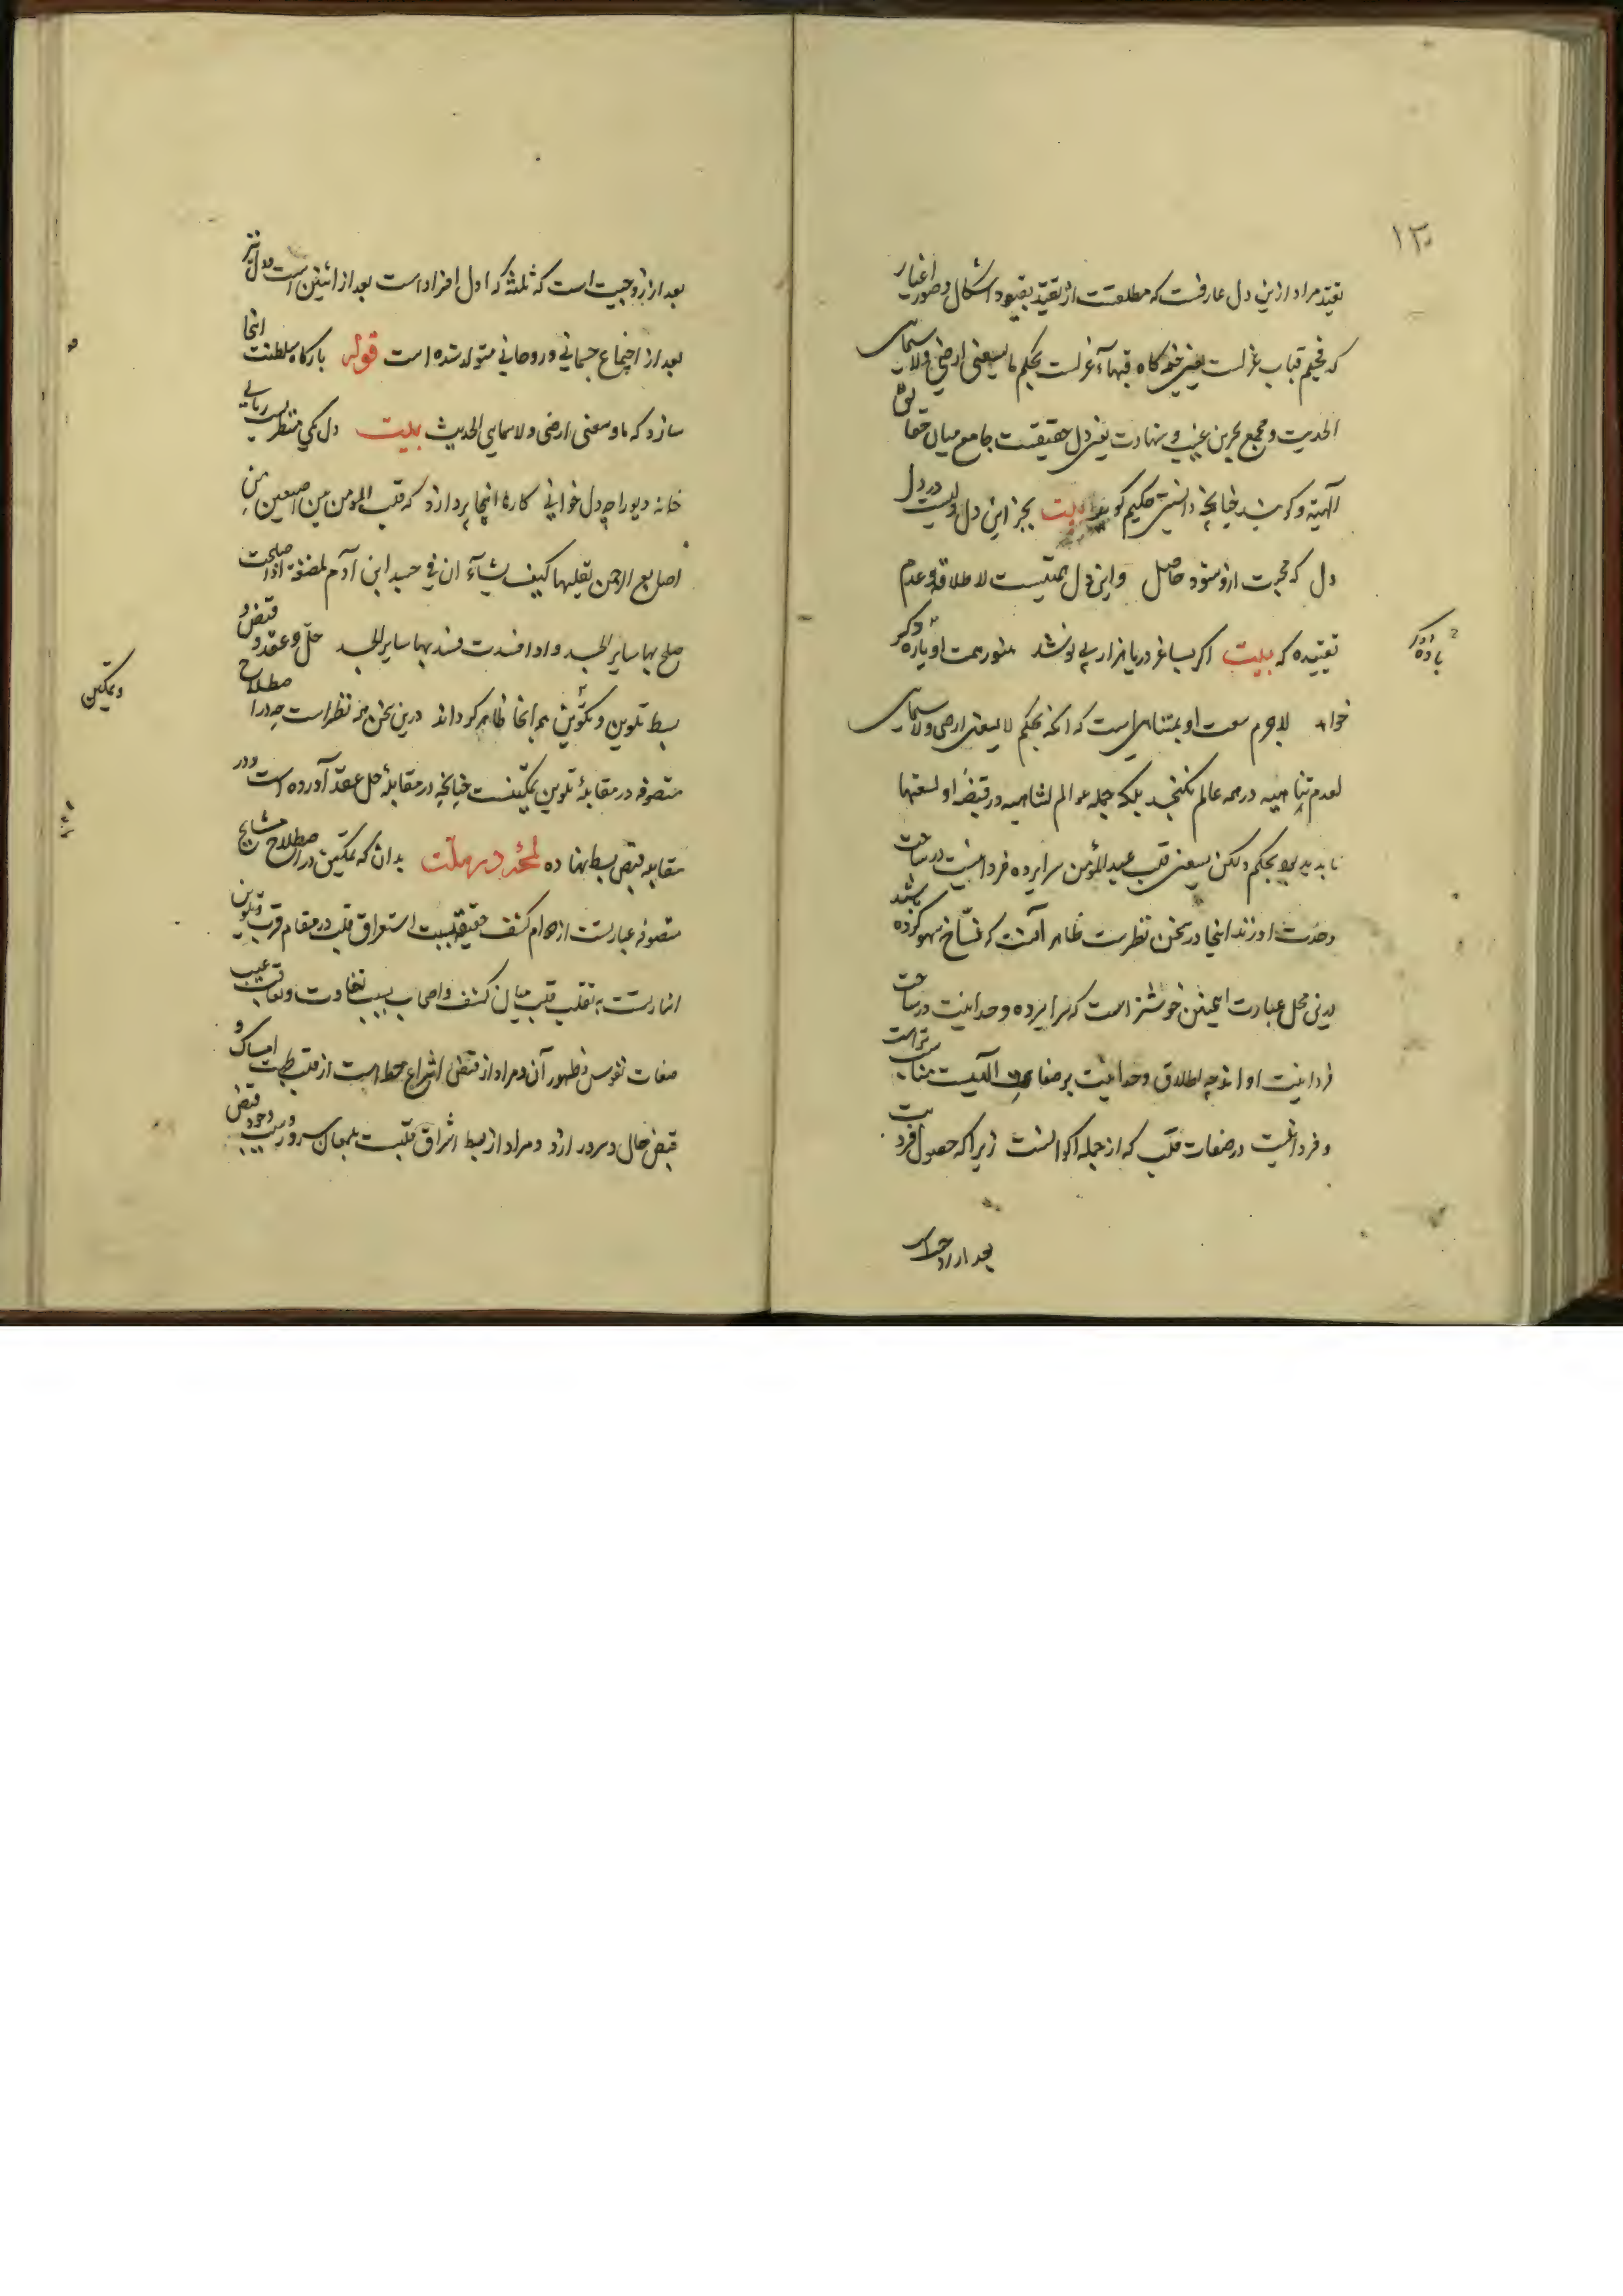 ۱۳
تقیّد مراد ازین دل عارفست که مطلقست از تقیّد بقیود اشکال و صور اغیار
که مخیم قباب عزلست یعنی خیمه کاه قبهاء عزلست بحکم ما یسعنی ارضی ولا سمائی
الحدیث و مجمع بحرین غیب و شهادت یعنی دل حقیقیست جامع میان حقایق
الهیّه و کونیه چنانچه دانستی حکیم کوید بیت بجز این دل ولیست در دل
دل که مجرت ازو ستوه حاصل واین دل همتیست لاطلاقه و عدم
تقیّیده که بیت اکر بساغر دریا هزار پی نوشد هنوز همت او باره دکر
باده دکر
خواهد لاجرم سعت او بمتناهی است که آنکه بحکم لا یسعنی ارضی ولا سمائی
لعدم تناهیه در همه عالم نکنجد بلکه جمله عوالم لتناهیه در قبضهٔ او لسعتها
ناپدید بود بحکم ولکن یسعنی قلب عبدی المؤمن سراپرده فردانیت در ساحت
وحدت او زند اینجا درین سخن نظرست ظاهر آنست که نسّاخ سهو کرده باشند
درین محل عبارت اینچنین خوشتر است که سراپرده وحدانیت در ساحت
فردانیت او اندچه اطلاق وحدانیت بر صفات الهیست مناسب تراست
و فردانیت در صفات قلب که از جمله اکوانست زیرا که حصول فردیت
بعد از زوجیت
بعد از زوجیت است که ثلثه که اول افراد است بعد از اثنین است و دل نیز
بعد از اجتماع جسمانی و روحانی متولد شده است قوله بارکاه سلطنت انجا
سازد که ما وسعنی ارضی ولا سمائی الحدیث بیت دل یکی منظریست ربانی
خانه دیو را چه دل خوانی کارها انجا پردازد که قلب المومن بین اصبعین من
اصابع الرحمن یقلبها کیف یشآء ان فی جسد ابن آدم لمضغة اذا صلحت
صلح بها سایر الجسد و اذا فسدت فسد بها سایر الجسد حلّ و عقد و قبض و
بسط تلوین و تکوین هم انجا ظاهر کرداند درین سخن نیز نظر است چه در اصطلاح
و تمکین
متصوفه در مقابلهٔ تلوین تمکینست چنانچه در مقابلهٔ حل عقد آورده است و در
مقابله قبض بسط نهاده بدان که تمکین در اصطلاح مشایخ
متصوفه عبارتست از دوام کشف حقیقت بسبب استغراق قلب در مقام قرب و تلوین
اشارتست به تقلب قلب میان کشف و احتجاب بسبب تفاوت و تعاقب غیب
صفات نفوس و ظهور آن و مراد از قبض انتزاع حظ است از قلب بجهت امساک و
قبض حال و سرور ازو و مراد از بسط اشراق قلبست بلمعان سرور و سبب وجود قبض